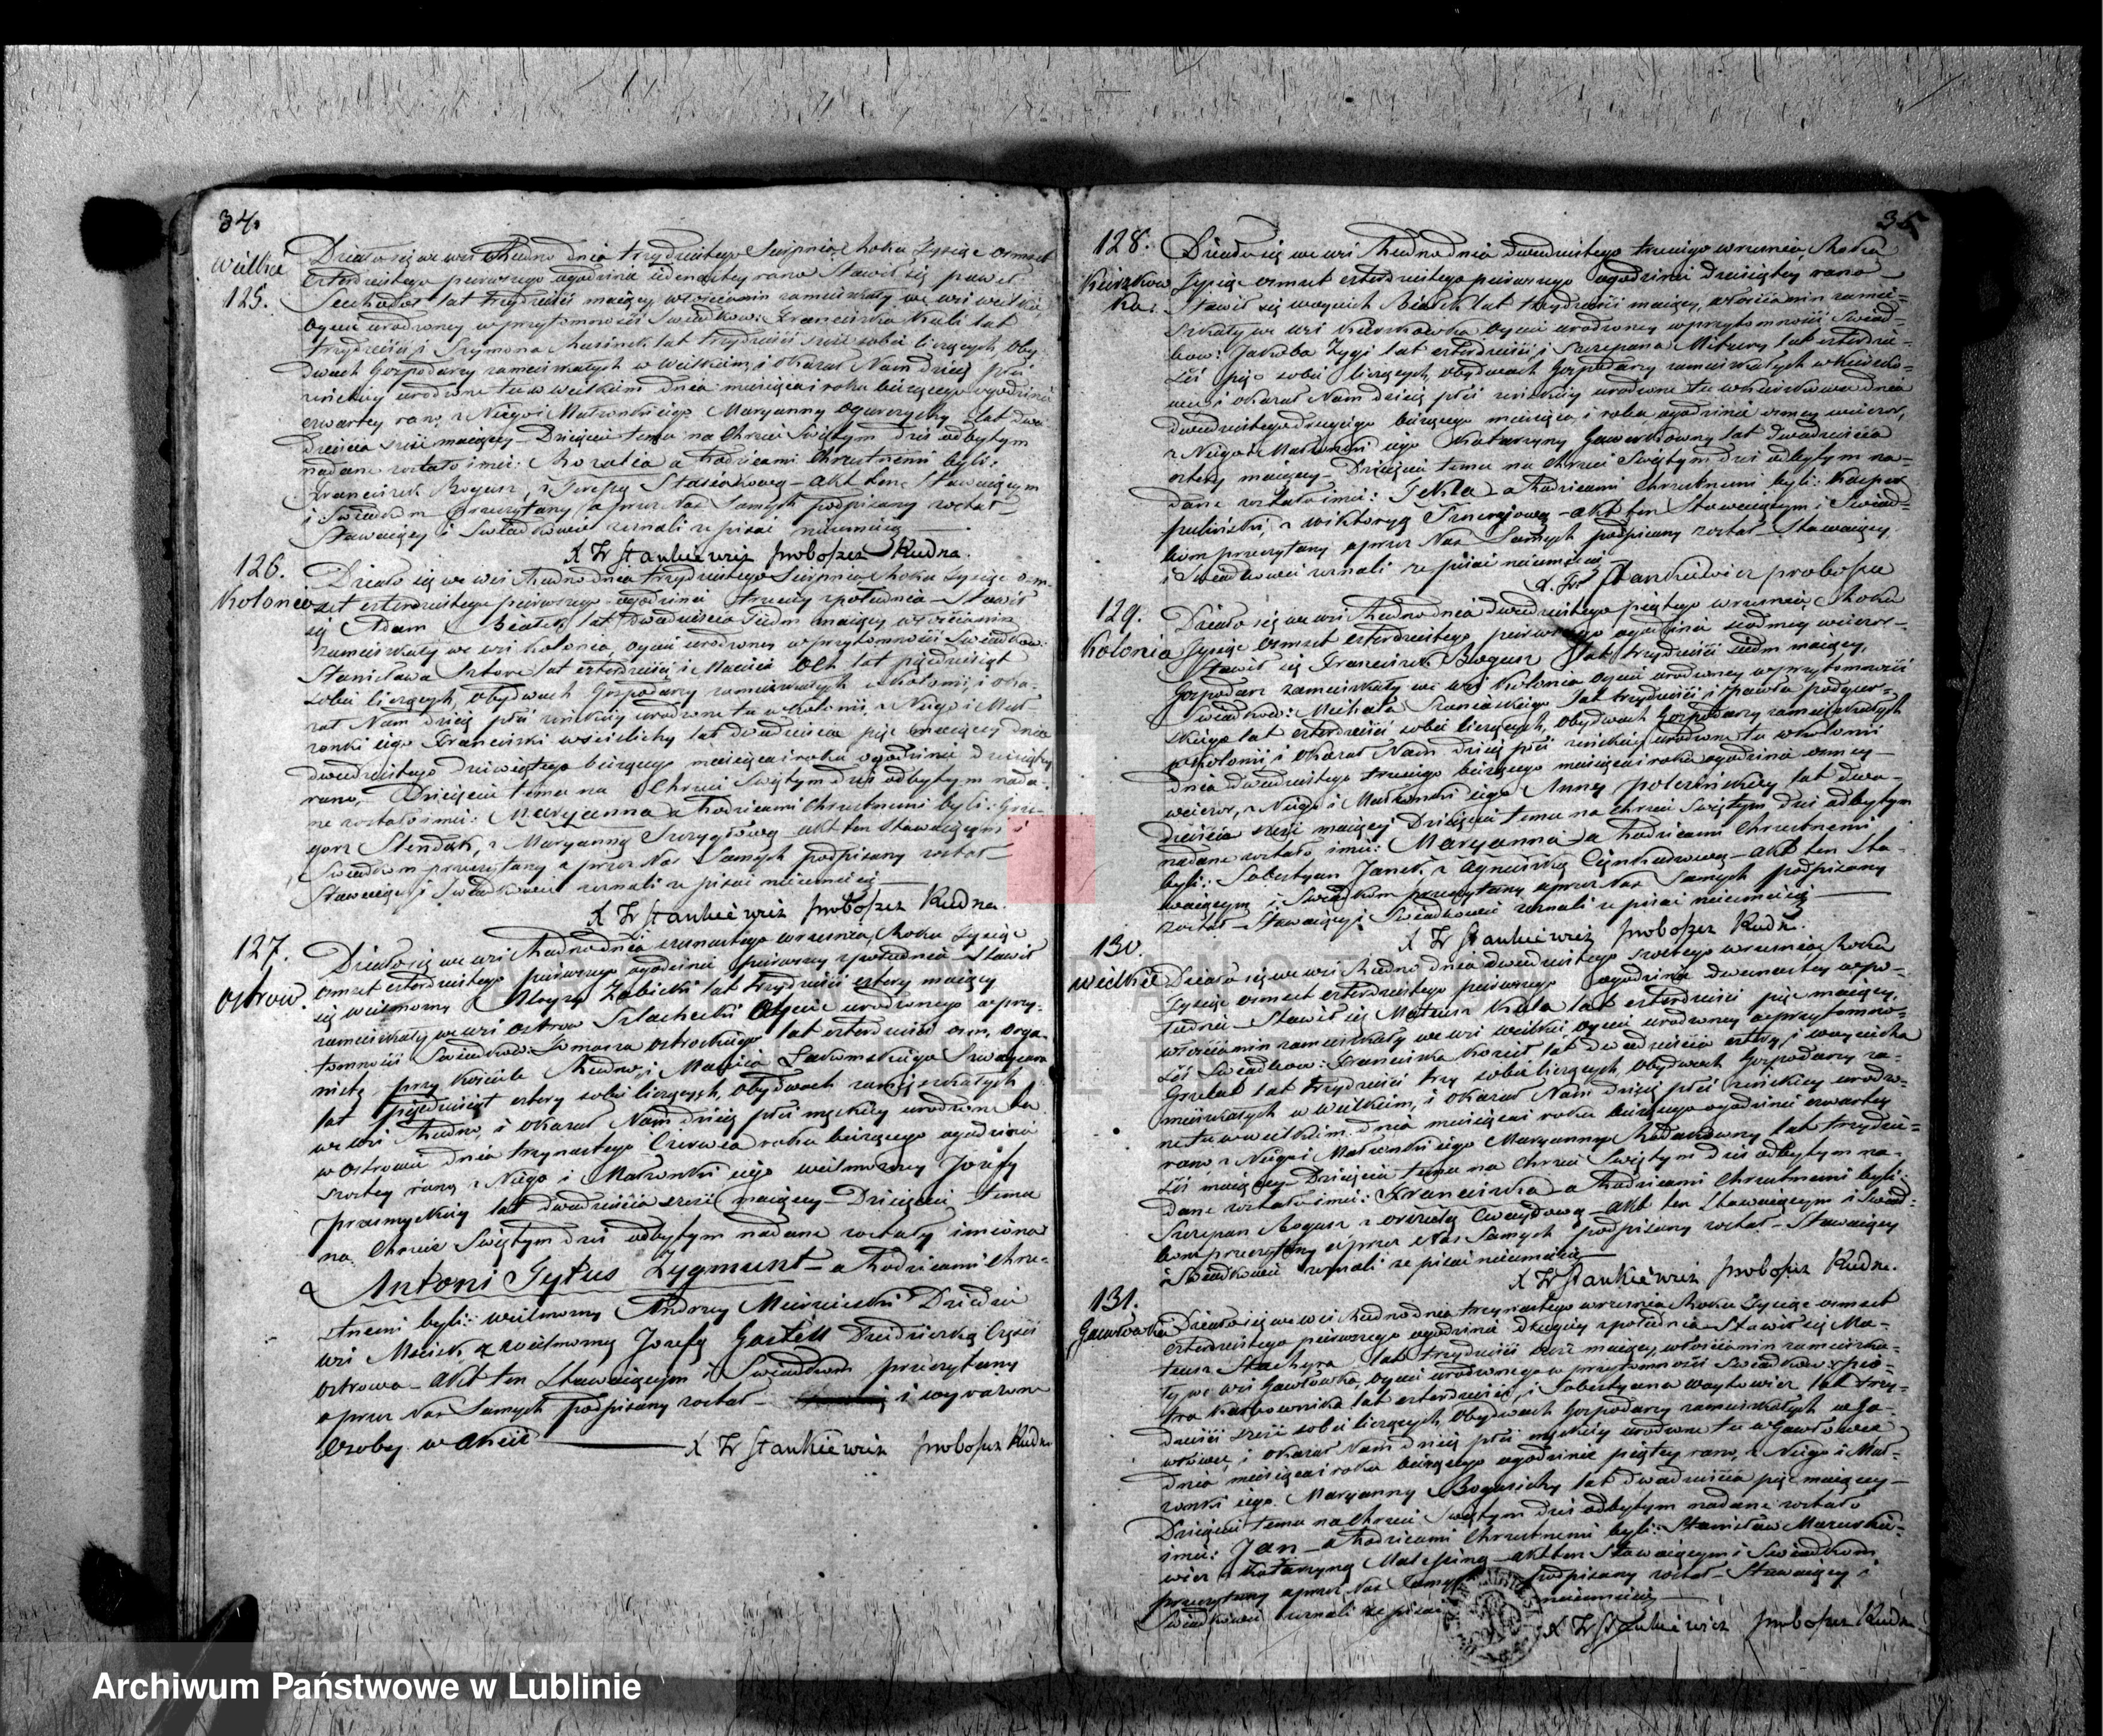 34.
Wielkie
125.
Działo się we wsi Rudno dnia trzydziestego Sierpnia, Roku Tysiąc osmset
czterdziestego pierwszego ogodzinie iedenastey rano Stawił się paweł
lat trzydzieści maiący włościanin zamieszkały we wsi wielkie
Oyciec urodzoney wprzytomności Świadków: Franciszka Kuli lat
trzydzieści i Szymona lat trzydzieści sześć sobie liczących, Oby-
dwoch Gospodarzy zamieszkałych w Wielkim, i okazał Nam dziecię płci
żeńskiey urodzone tu w wielkim dnia miesiąca i roku bieżącego ogodzinie
czwartey rano, z Niego i Małżonki iego Maryanny lat dwa-
dzieścia sześć maiącey – Dziecięciu temu na Chrzcie Świętym dziś odbytym
nadane zostało imie: Rozalia a Rodzicami Chrzestnemi byli:
Franciszek Bogusz, z Teressą Stasiakową – akt ten Stawaiącym
i Świadkom Przeczytany, a przez Nas Samych podpisany został –
Stawaiący i Świadkowie zeznali ze pisać nieumieią
X W Stankiewicz proboszcz Rudna.
126.
Kolonia
Działo się we wsi Rudno dnia trzydziestego Sierpnia, Roku Tysiąc osm-
set czterdziestego pierwszego ogodzinie trzeciey zpołudnia – Stawił
się Adam Białek, lat dwadzieścia siedm maiący włościanin
zamieszkały we wsi kolonia, oyciec urodzoney wprzytomności Świadków:
Stanisława lat czterdzieści i Macieia Olk lat pięćdziesiąt
sobie liczących, obydwoch Gospodarzy zamieszkałych w Kolonii, i oka-
zał Nam dziecię płci żeńskiey urodzone tu w kolonii, z Niego i Mał-
żonki iego Franciszki lat dwadzieścia pięć maiącey dnia
dwudziestego dziewiątego bieżącego miesiąca i roku ogodzinie dziesiątey
rano, – Dziecięciu temu na Chrzcie Świętym dziś odbytym nada-
ne zostało imie: Maryanna a Rodzicami Chrzestnemi byli: Grze-
gorz z Maryanną akt ten Stawaiącym i
Świadkom przeczytany a przez Nas Samych podpisany został –
Stawaiący i Świadkowie zeznali ze pisać nieumieią
X W Stankiewicz proboszcz Rudna.
127.
Ostrow.
Działo się we wsi Rudno dnia września, Roku Tysiąc
osmset czterdziestego pierwszego ogodzinie pierwszey zpołudnia Stawił
się wielmożny Aloyzy Zabicki lat trzydzieści cztery maiący
zamieszkały we wsi Ostrow Szlachecki Oyciec urodzonego wprzy-
tomności Świadków: Tomasza Ostrockiego lat czterdzieści osm, orga-
nistę przy kościele Rudno, i Macieia
lat pięćdziesiąt cztery sobie liczących, obydwoch zamieszkałych
we wsi Rudno, i okazał Nam dziecię płci męzkiey urodzone tu
w Ostrowie dnia trzynastego Czerwca roku bieżącego ogodzinie
szostey rano, z Niego i Małżonki iego wielmożney Jozefy
lat dwadzieścia sześć maiącey – Dziecięciu temu
na Chrzcie Świętym dziś odbytym nadane zostały imiona
Antoni Tytus Zygmunt – a Rodzicami Chrze-
stnemi byli: wielmożny Andrzey Dziedzic
wsi z wielmożną Jozefą Gastell Dziedziczką Części
Ostrowa – akt ten Stawaiącym i Świadkom przeczytany
a przez Nas Samych podpisany został – i wyrażone
Osoby w akcie
X W Stankiewicz proboszcz Rudna
35
128.
Działo się we wsi Rudno dnia dwudziestego trzeciego września, Roku
Tysiąc osmset czterdziestego pierwszego ogodzinie dziesiątey rano
Stawił się woyciech Białek lat trzydzieści maiący, włościanin zamie-
szkały we wsi oyciec urodzoney wprzytomności Świad-
kow: Jakuba Zygi lat czterdzieści, i Szczepana Mitury lat czterdzie-
ści pięć sobie liczących, obydwoch Gospodarzy zamieszkałych
i okazał Nam dziecię płci żeńskiey urodzone tu dnia
dwudziestego drugiego bieżącego miesiąca i roku, ogodzinie osmey wieczor,
z Niego i Małżonki iego Katarzyny lat dwadzieścia
cztery maiącey – Dziecięciu temu na Chrzcie Świętym dziś odbytym na-
dane zostało imie: Tekla – a Rodzicami Chrzestnemi byli: Kacper
z wiktoryą – akt ten Stawaiącym i Świad-
kom przeczytany a przez Nas Samych podpisany został – Stawaiący
i Świadkowie zeznali ze pisać nieumieią –
X. W Stankiewicz proboszcz
129.
Kolonia
Działo się we wsi Rudno dnia dwudziestego piątego września, Roku
Tysiąc osmset czterdziestego pierwszego ogodzinie siodmey wieczor –
Stawił się Franciszek Bogusz lat trzydzieści siedm maiący,
Gospodarz zamieszkały we wsi Kolonia oyciec urodzoney wprzytomności
Świadków: Michała lat trzydzieści i Pawła podgur-
skiego lat czterdzieści sobie liczących, obydwoch Gospodarzy zamieszkałych
w kolonii i okazał Nam dziecię płci żeńskiey urodzone tu w kolonii
dnia dwudziestego trzeciego bieżącego miesiąca i roku ogodzinie osmey
wieczor, z Niego i Małżonki iego Anny lat dwa-
dzieścia sześć maiącey Dziecięciu temu na chrzcie Świętym dziś odbytym
nadane zostało imie: Maryanna – a Rodzicami Chrzestnemi
byli: Sobestyan Janek, z Agnieszką – akt ten Sta-
waiącym i Świadkom przeczytany a przez Nas Samych podpisany
został – Stawaiący i Świadkowie zeznali ze pisać nieumieią
X W Stankiewicz proboszcz Rudn.
130.
Wielkie
Działo się we wsi Rudno dnia dwudziestego szostego września, Roku
Tysiąc osmset czterdziestego pierwszego ogodzinie dwunastey wpo-
łudnie – Stawił się Mateusz Kula lat czterdzieści pięć maiący,
włościanin zamieszkały we wsi wielkie oyciec urodzoney wprzytomno-
ści Świadków: Franciszka Kozieł lat dwadzieścia cztery, i woyciecha
lat trzydzieści trzy sobie liczących, obydwoch Gospodarzy za-
mieszkałych w wielkim, i okazał Nam dziecię płci żeńskiey urodzo-
ne tu w wielkim dnia miesiąca i roku bieżącego ogodzinie czwartey
rano z Niego i Małżonki iego Maryanny lat trzydzie-
ści maiącey – Dziecięciu temu na Chrzcie Świętym dziś odbytym na-
dane zostało imie: Franciszka – a Rodzicami Chrzestnemi byli:
Szczepan Bogusz z – akt ten Stawaiącym i Świad-
kom przeczytany a przez Nas Samych podpisany został – Stawaiący
i Świadkowie zeznali ze pisać nieumieią
X W Stankiewicz proboszcz Rudna.
131.
Gawłowka
Działo się we wsi Rudno dnia trzynastego września, Roku Tysiąc osmset
czterdziestego pierwszego ogodzinie drugiey zpołudnia – Stawił się Ma-
teusz Stachyra lat trzydzieści maiący, włościanin zamieszka-
ły we wsi Gawłowka, oyciec urodzonego w przytomności Świadków: Pio-
tra Karbownika lat czterdzieści, i Sobestyana woytowicz lat trzy-
dzieści sześć sobie liczących, obydwoch Gospodarzy zamieszkałych w Ga-
włowce, i okazał Nam dziecię płci męzkiey urodzone tu w Gawłowce
dnia miesiąca i roku bieżącego ogodzinie piątey rano, z Niego i Mał-
żonki iego Maryanny lat dwadzieścia pięć maiącey –
Dziecięciu temu na Chrzcie Świętym dziś odbytym nadane zostało
imie: Jan – a Rodzicami Chrzestnemi byli: Stanisław
z Katarzyną – akt ten Stawaiącym i Świadkom
przeczytany a przez Nas Samych podpisany został – Stawaiący i
Świadkowie zeznali ze pisać nieumieią –
X W Stankiewicz proboszcz Rudna
Archiwum Państwowe w Lublinie